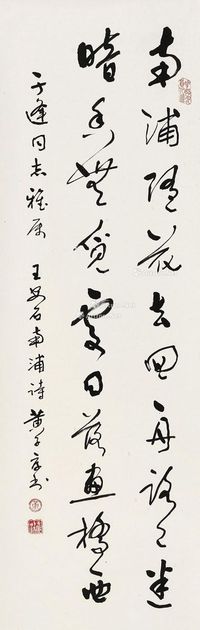 南浦随花去回舟路已迷
暗香无觅处日落画桥西
于逢同志雅属 王安石南浦诗 黄子厚书